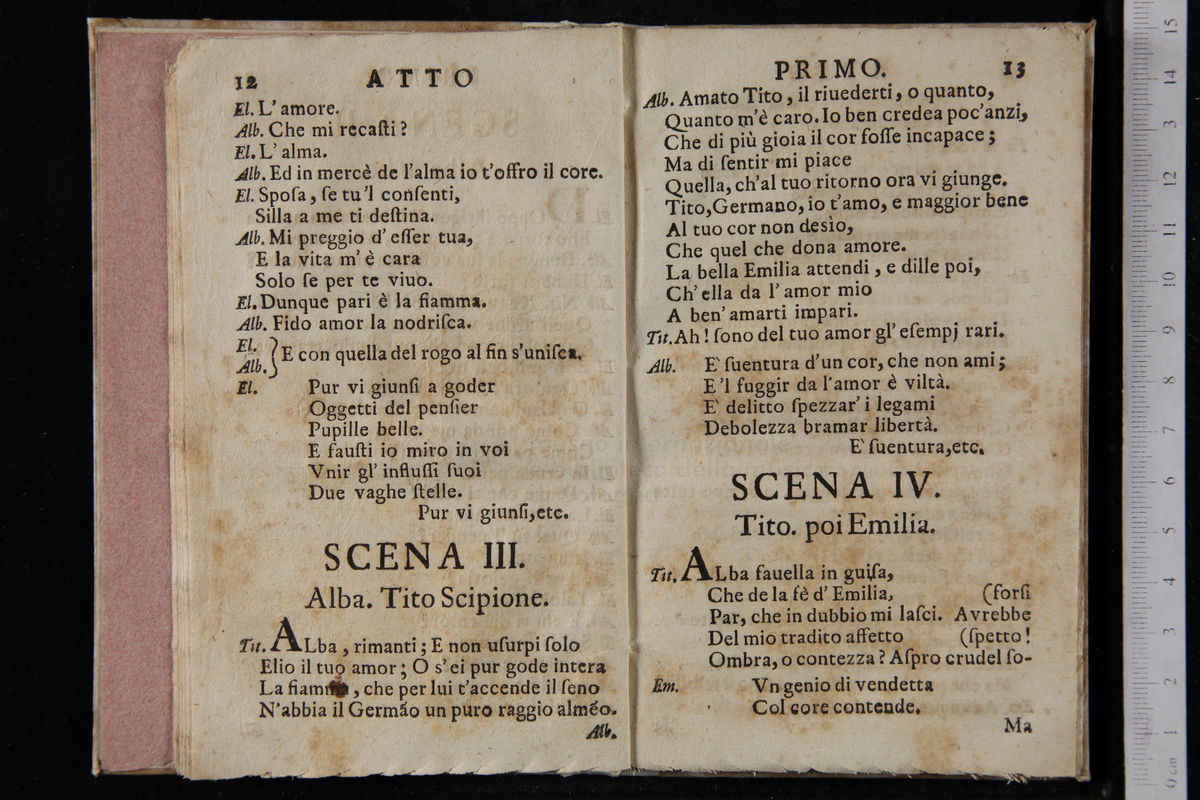 12 ATTO
El. L' amore.
Alb. Che mi recaſti ?
El. L' alma.
Alb. Ed in mercè de l'alma io t'offro il core.
El. Spoſa , ſe tu 'l conſenti,
Silla a me ti deſtina.
Alb. Mi preggio d' eſſer tua,
E la vita m' è cara
Solo ſe per te viuo.
El. Dunque pari è la fiamma.
Alb. Fido amor la nodriſca.
El.
Alb. } E con quella del rogo al fin s'uniſca.
El. Pur vi giunſi a goder
Oggetti del penſier
Pupille belle.
E fauſti io miro in voi
Vnir gl' influſſi ſuoi
Due vaghe ſtelle.
Pur vi giunſi,etc.
SCENA III.
Alba. Tito Scipione.
Tit. ALba , rimanti ; E non uſurpi ſolo
Elio il tuo amor ; O s'ei pur gode intera
La fiamma , che per lui t'accende il ſeno
N'abbia il Germāo un puro raggio almēo.
Alb.
PRIMO. 13
Alb. Amato Tito , il riuederti , o quanto,
Quanto m'è caro. Io ben credea poc'anzi,
Che di più gioia il cor foſſe incapace ;
Ma di ſentir mi piace
Quella, ch'al tuo ritorno ora vi giunge.
Tito,Germano, io t'amo, e maggior bene
Al tuo cor non desìo,
Che quel che dona amore.
La bella Emilia attendi , e dille poi,
Ch' ella da l' amor mio
A ben' amarti impari.
Tit. Ah ! ſono del tuo amor gl' eſempj rari.
Alb. E' ſuentura d'un cor, che non ami ;
E 'l fuggir da l'amor è viltà.
E' delitto ſpezzar' i legami
Debolezza bramar libertà.
E' ſuentura,etc.
SCENA IV.
Tito. poi Emilia.
Tit. ALba fauella in guiſa,
Che de la fè d' Emilia, (forſi
Par, che in dubbio mi laſci. Avrebbe
Del mio tradito affetto (ſpetto !
Ombra, o contezza ? Aſpro crudel ſo-
Em. Vn genio di vendetta
Col core contende.
Ma
15
14
13
12
11
10
9
8
7
6
5
4
3
2
1
0 cm